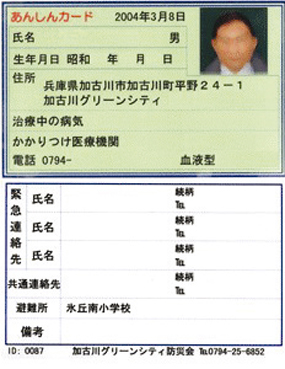 あんしんカード 2004年3月8日
氏名 男
生年月日 昭和 年 月 日
住所
兵庫県加古川市加古川町平野24-1
加古川グリーンシティ
治療中の病気
かかりつけ医療機関
電話 0794- 血液型
緊急連絡先 氏名 続柄 ℡
氏名 続柄 ℡
氏名 続柄 ℡
共通連絡先 続柄 ℡
避難所 氷丘南小学校
備考
ID: 0087 加古川グリーンシティ防災会 ℡0794-25-6852